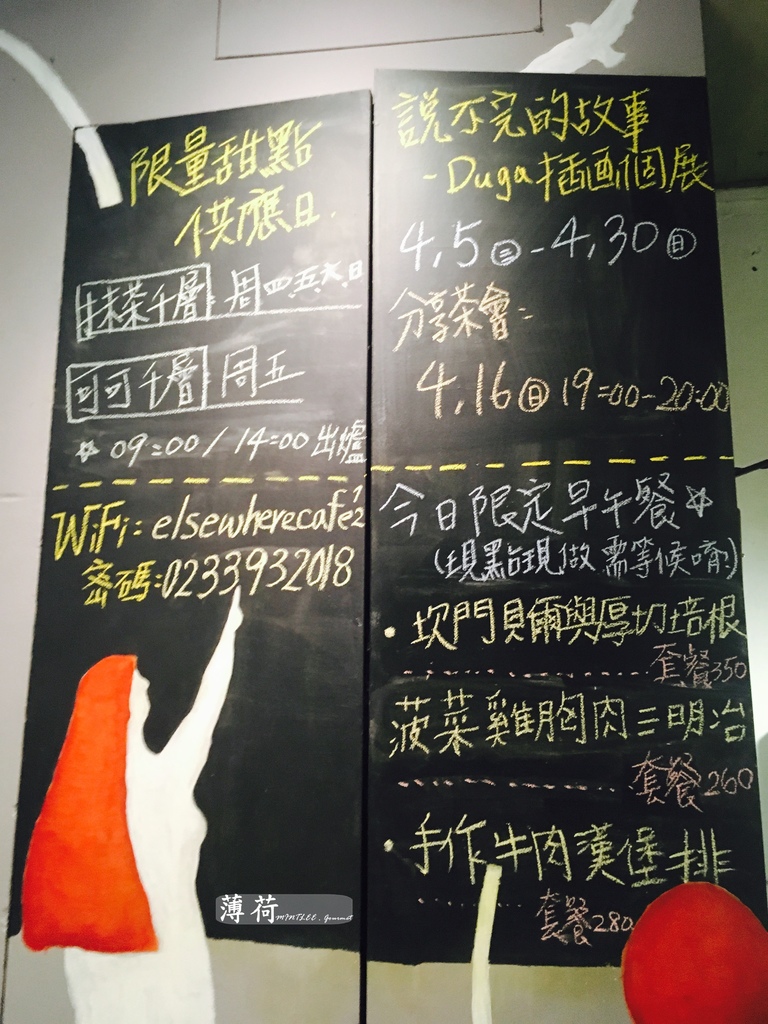 限量甜點
供應日.
抹茶千層 周四五六日
可可千層 周五
☆ 09:00 / 14:00 出爐
WiFi: elsewherecafe 1
2
密碼:0233932018
說不完的故事
-Duga插画個展
4.5㊂-4.30㊐
分享茶會:
4.16㊐ 19:00-20:00
今日限定早午餐☆
(現點現做 需等候唷!)
·坎門貝爾與厚切培根
套餐350
菠菜雞胸肉三明治
套餐260
·手作牛肉漢堡排
套餐280
薄荷 MINTLEE. Gourmet